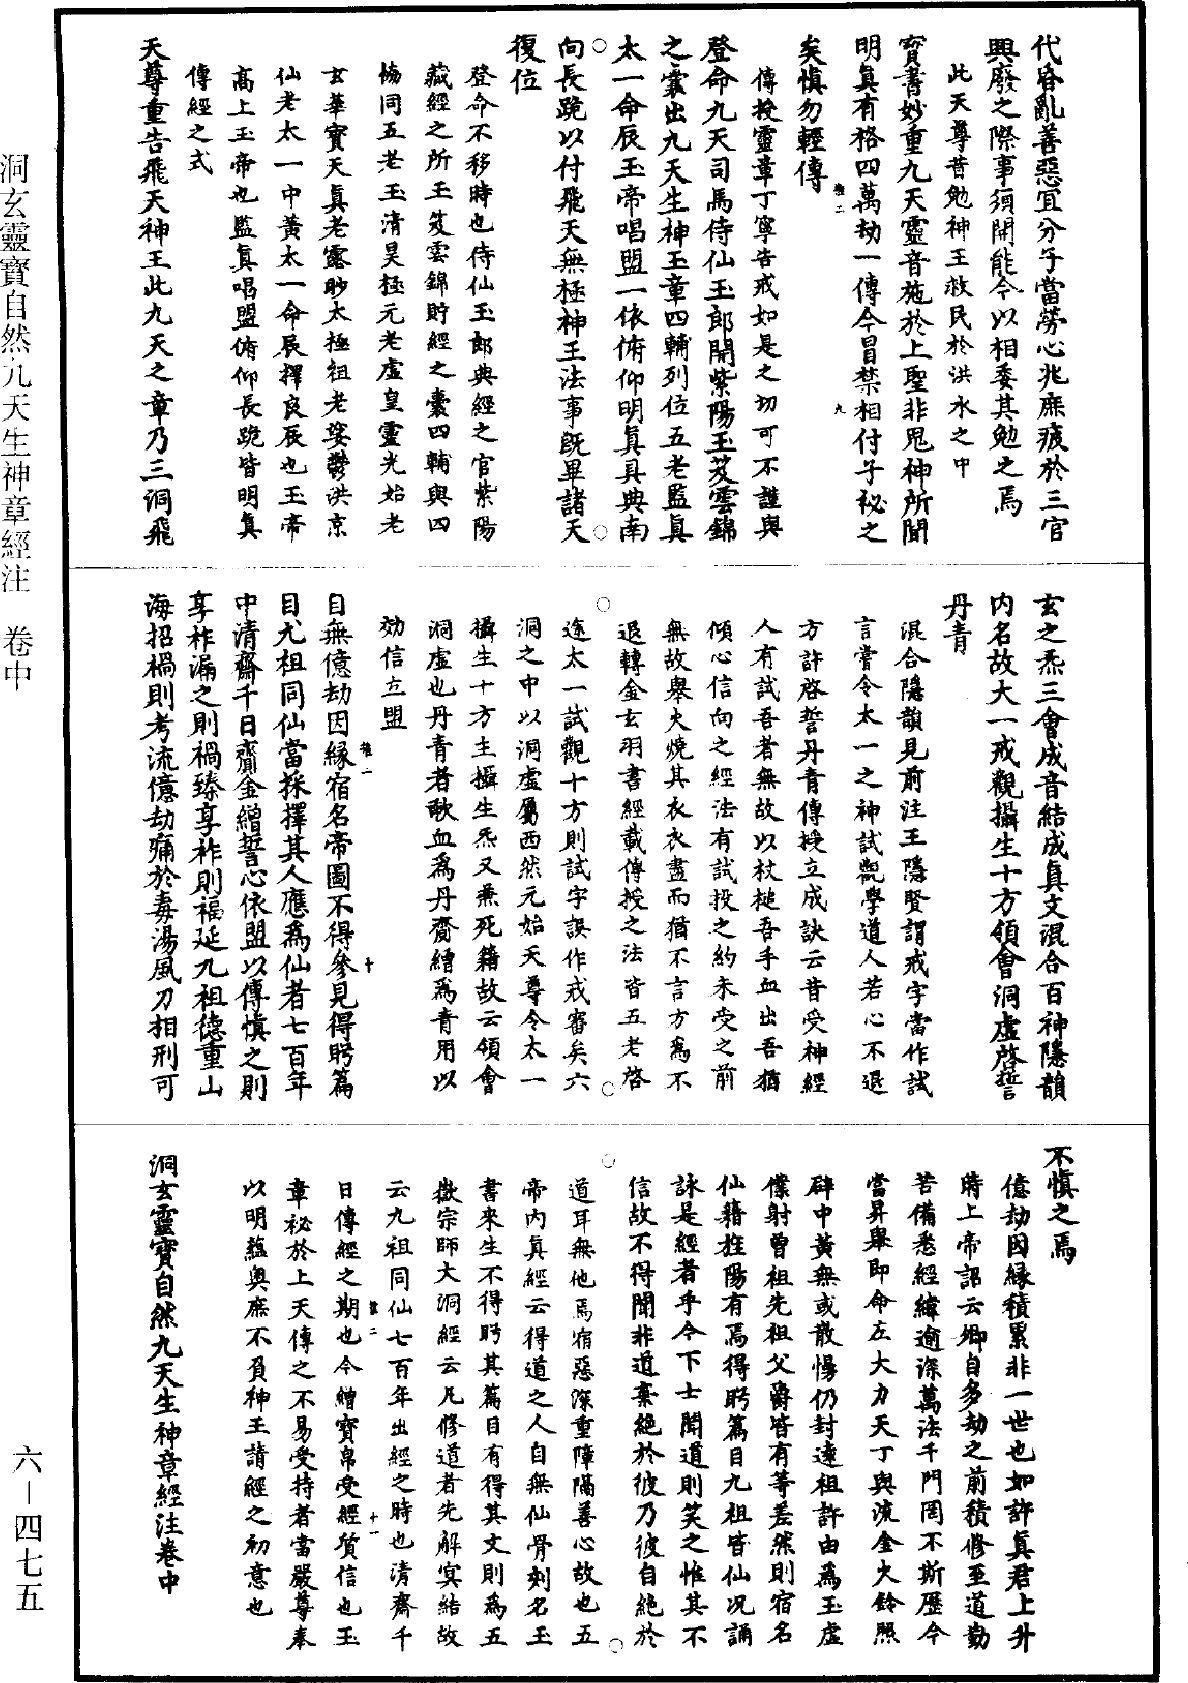 代昏亂善惡宜分子當勞心兆庶疲於三官
興廢之際事須開能今以相委其勉之焉
此天尊昔勉神王救民於洪水之中
寶書妙重九天靈音施於上聖非鬼神所聞
明真有格四萬劫一傳今冒禁相付子祕之
矣慎勿輕傳
傳授靈章丁寧告戒如是之切可不謹與
登命九天司馬侍仙玉郎開紫陽玉笈雲錦
之囊出九天生神玉章四輔列位五老監真
太一命辰玉帝唱盟一依俯仰明真具典南
向長跪以付飛天無極神王法事既畢諸天
復位
登命不移時也侍仙玉郎典經之官紫陽
藏經之所玉笈雲錦貯經之囊四輔與四
協同五老玉清昊極元老虛皇靈光始老
玄華寶天真老露眇太極祖老娑鬱洪京
仙老太一中黃太一命辰擇良辰也玉帝
高上玉帝也監真唱盟俯仰長跪皆明真
傳經之式
天尊重告飛天神王此九天之章乃三洞飛
玄之炁三會成音結成真文混合百神隱韻
內名故大一戒觀攝生十方領會洞虛啓誓
丹青
混合隱韻見前注王隱賢謂戒字當作試
言嘗令太一之神試觀學道人若心不退
方許啓誓丹青傳授立成訣云昔受神經
人有試吾者無故以杖槌吾手血出吾猶
傾心信向之經法有試投之約未受之前
無故舉火燒其衣衣盡而猶不言方為不
退轉金玄羽書經載傳授之法皆五老啓
途太一試觀十方則試字誤作戒審矣六
洞之中以洞虛屬西然元始天尊令太一
攝生十方主攝生炁又兼死籍故云領會
洞虛也丹青者歃血為丹齎繒為青用以
効信立盟
自無億劫因緣宿名帝圖不得參見得眄篇
目九祖同仙當採擇其人應為仙者七百年
中清齋千日齎金繒誓心依盟以傳慎之則
享祚漏之則禍臻享祚則福延九祖德重山
海招禍則考流億劫痛於毒湯風刀相刑可
不慎之焉
億劫因緣積累非一世也如許真君上升
時上帝詔云卿自多劫之前積修至道勤
苦備悉經緯逾深萬法千門罔不斯歷今
當昇舉即命左大力天丁與流金火鈴照
辟中黃無或散慢仍封遠祖許由為玉虛
僕射曾祖先祖父爵皆有等差然則宿名
仙籍旌陽有焉得眄篇目九祖皆仙況誦
詠是經者乎今下士聞道則笑之惟其不
信故不得聞非道棄絕於彼乃彼自絕於
道耳無他焉宿惡深重障隔善心故也五
帝內真經云得道之人自無仙骨刻名玉
書來生不得眄其篇目有得其文則為五
嶽宗師大洞經云凡修道者先解冥結故
云九祖同仙七百年出經之時也清齋千
日傳經之期也今繒寶帛受經質信也玉
章祕於上天傳之不易受持者當嚴尊奉
以明蘊奧庶不負神王請經之初意也
洞玄靈寶自然九天生神章經注卷中
洞玄靈寶自然九天生神章經注 卷中
六—四七五